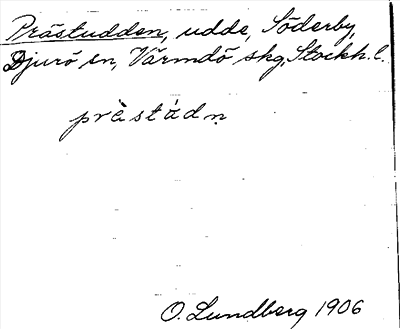 Prästudden, udde, Söderby,
Djurö sn, Värmdö skg, Stockh. l.
prä̀stádn̥
O. Lundberg 1906